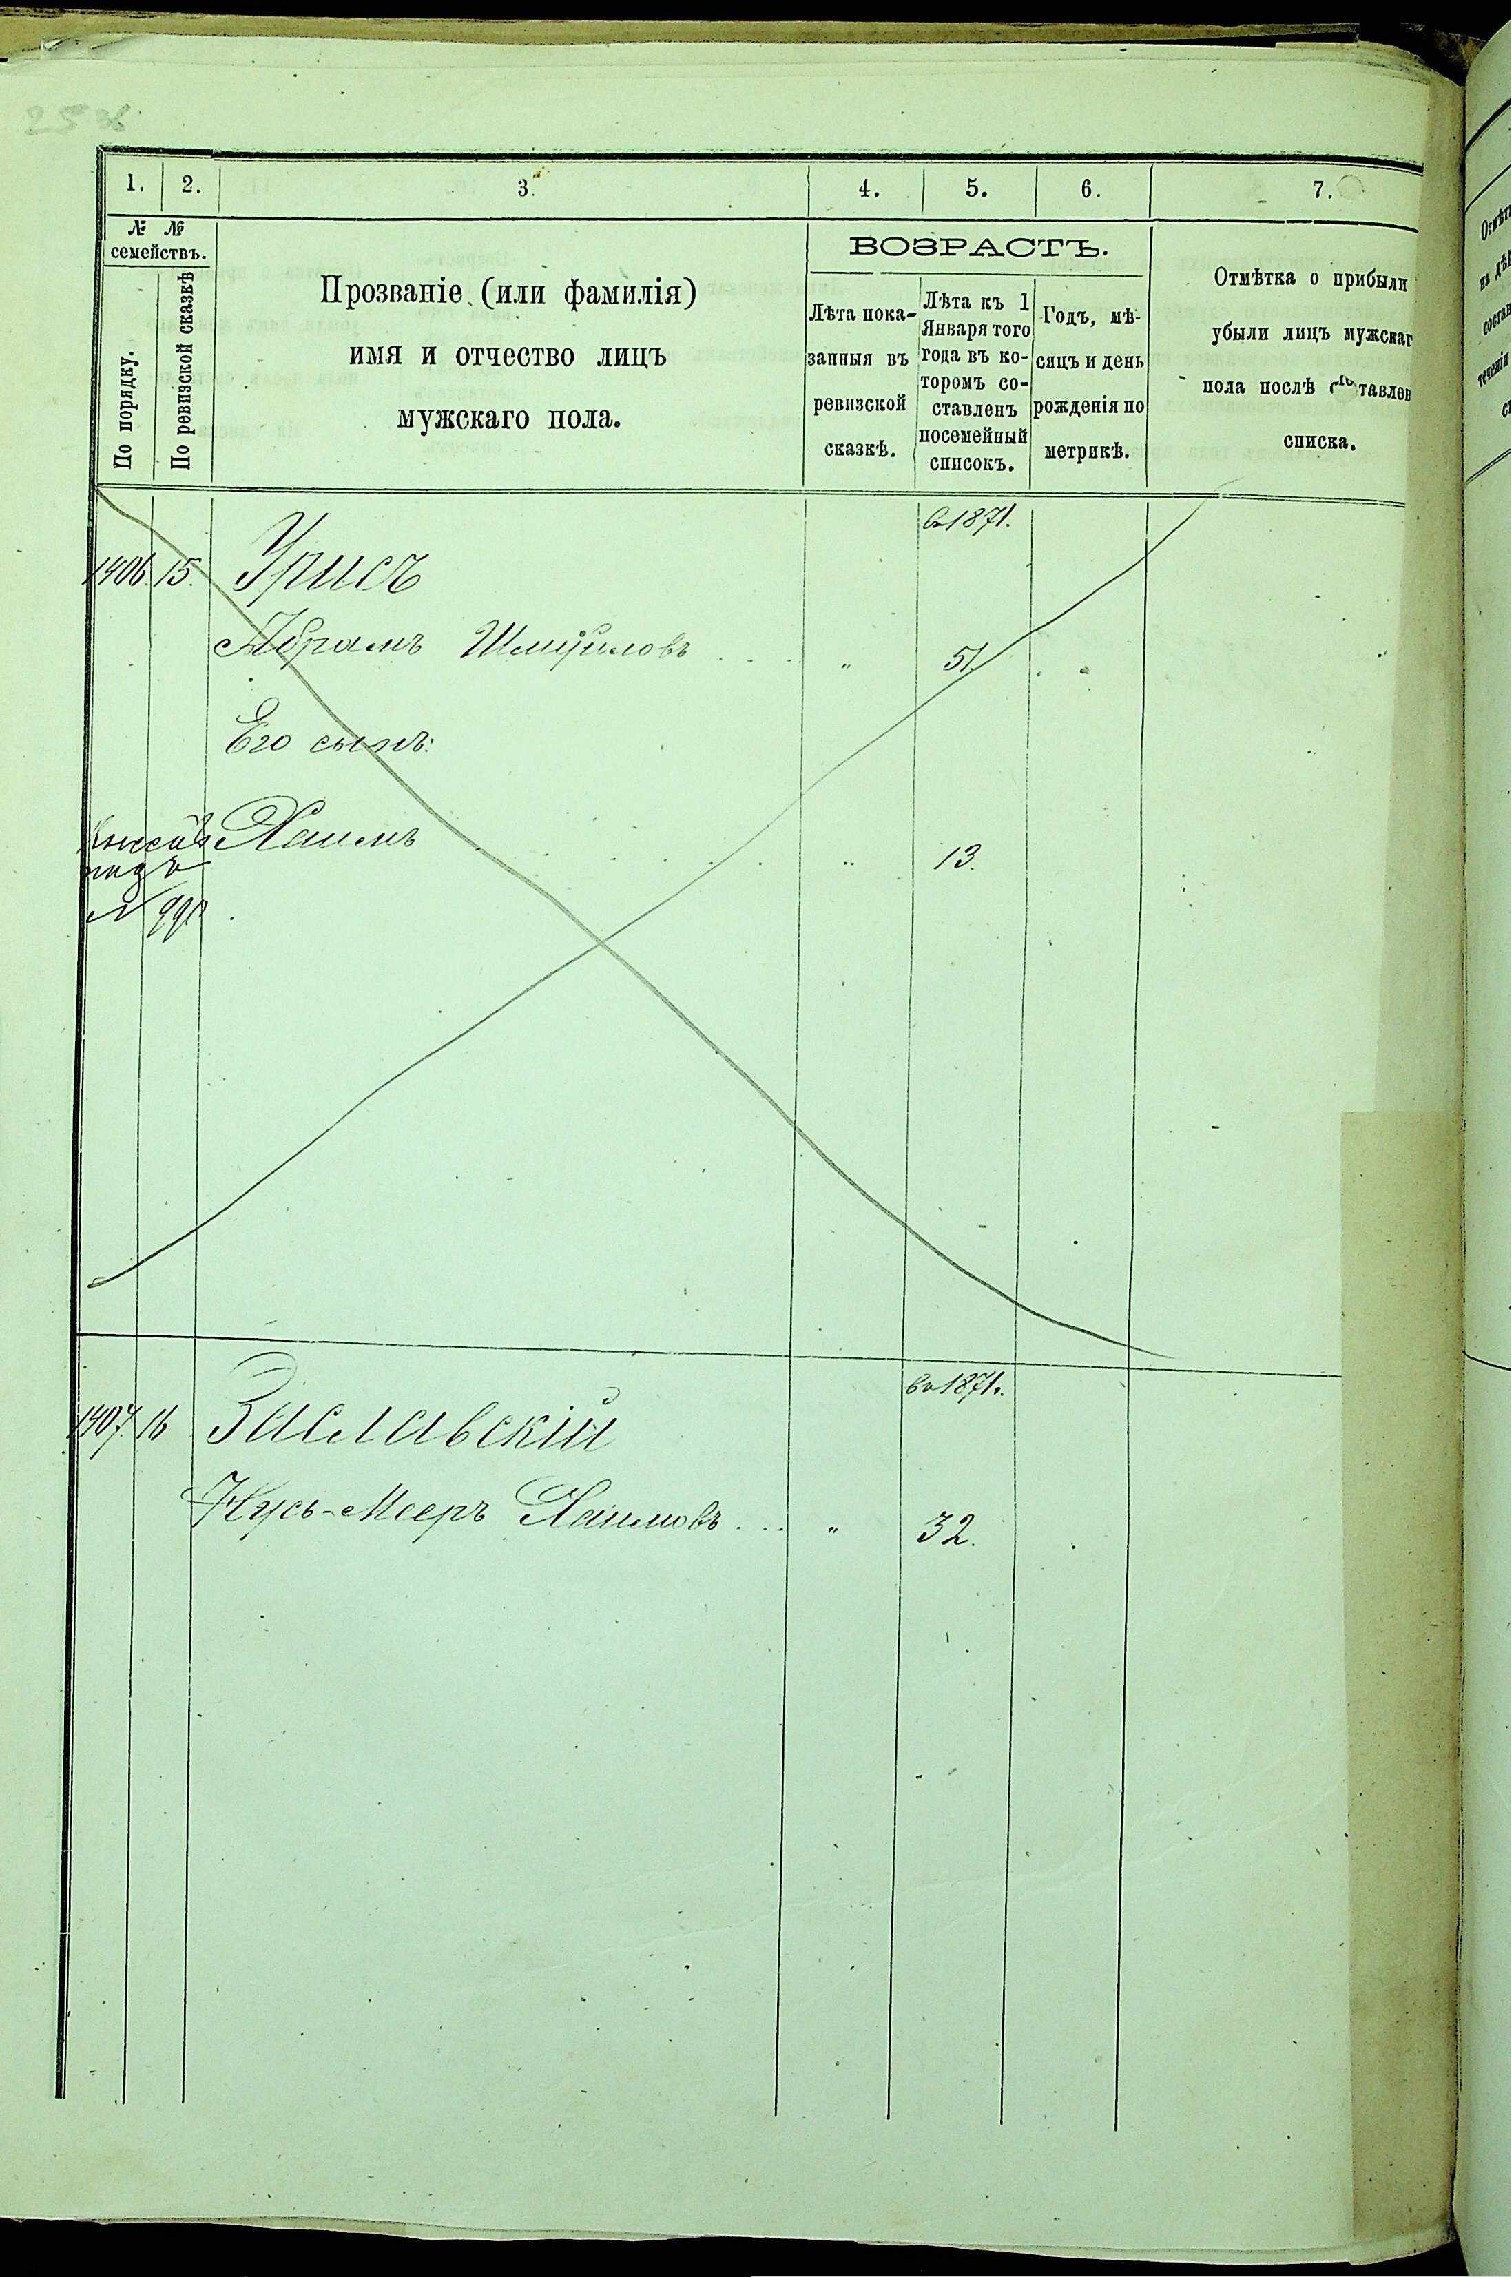 1. 2. 3. 4. 5. 6. 7.
№ №
семействъ.
По порядку.
По ревизской сказкѣ
Прозваніе (или фамилія)
имя и отчество лицъ
мужскаго пола.
ВОЗРАСТЪ.
Лѣта пока-
занныя въ
ревизской
сказкѣ.
Лѣта къ 1
Января того
года въ ко-
торомъ со-
ставленъ
посемейный
списокъ.
Годъ, мѣ-
сяцъ и день
рожденія по
метрикѣ.
Отмѣтка о прибыли
убыли лицъ мужскаг
пола послѣ составлен
списка.
въ 1871.
1406. 15. Урисъ
Абрамъ Шмуиловъ .... " 51
Его сынъ:
Хаимъ " 13.
подъ
№ 990
въ 1871.
1407. 16 Заславскій
Нусь-Мееръ Хаимовъ .... " 32.